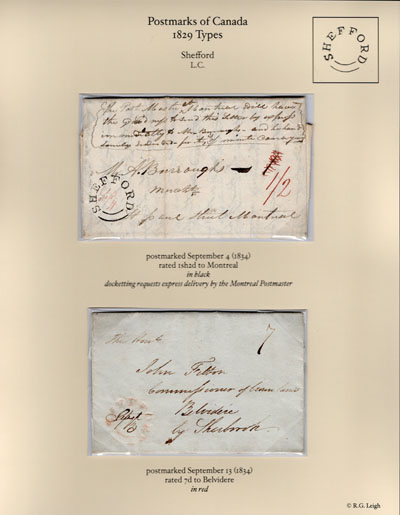 Postmarks of Canada
1829 Types
Shefford
L.C.
SHEFFORD
The Post Master Montreal will have
the Goodness to send this letter by express
immediatly to Mr Burroughs and he will
Burroughs
1/2
SHEFFORD
St Paul Street Montreal
postmarked September 4 (1834)
rated 1sh2d to Montreal
in black
docketting requests express delivery by the Montreal Postmaster
7
John Felton
Commissioner of Crown Land
Belvidere
by Sherbrook
postmarked September 13 (1834)
rated 7d to Belvidere
in red
© R.G. Leigh